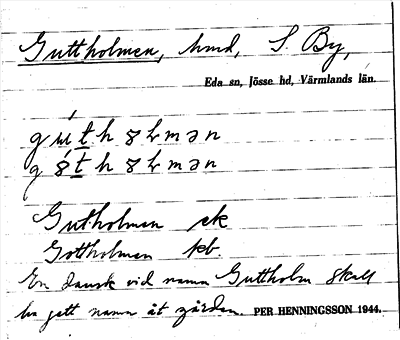 Guttholmen, hmd, S. By,
Eda sn, Jösse hd, Värmlands län.
Gutholman ek
Gottholman kb.
En dansk vid namn Guttholm skall
ha gett namn åt gården. PER HENNINGSSON 1944.